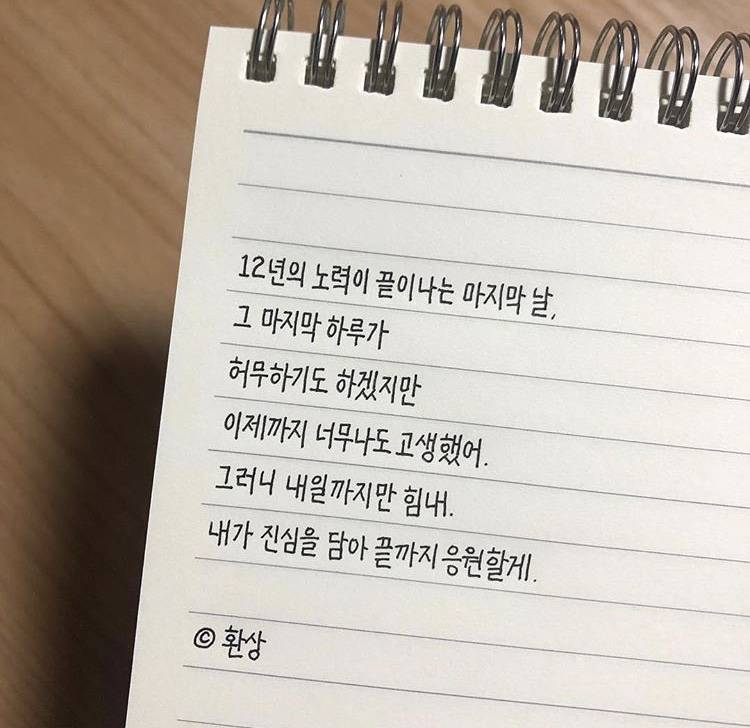 12년의 노력이 끝이나는 마지막 날,
그 마지막 하루가
허무하기도 하겠지만
이제까지 너무나도 고생했어.
그러니 내일까지만 힘내.
내가 진심을 담아 끝까지 응원할게.
© 환상